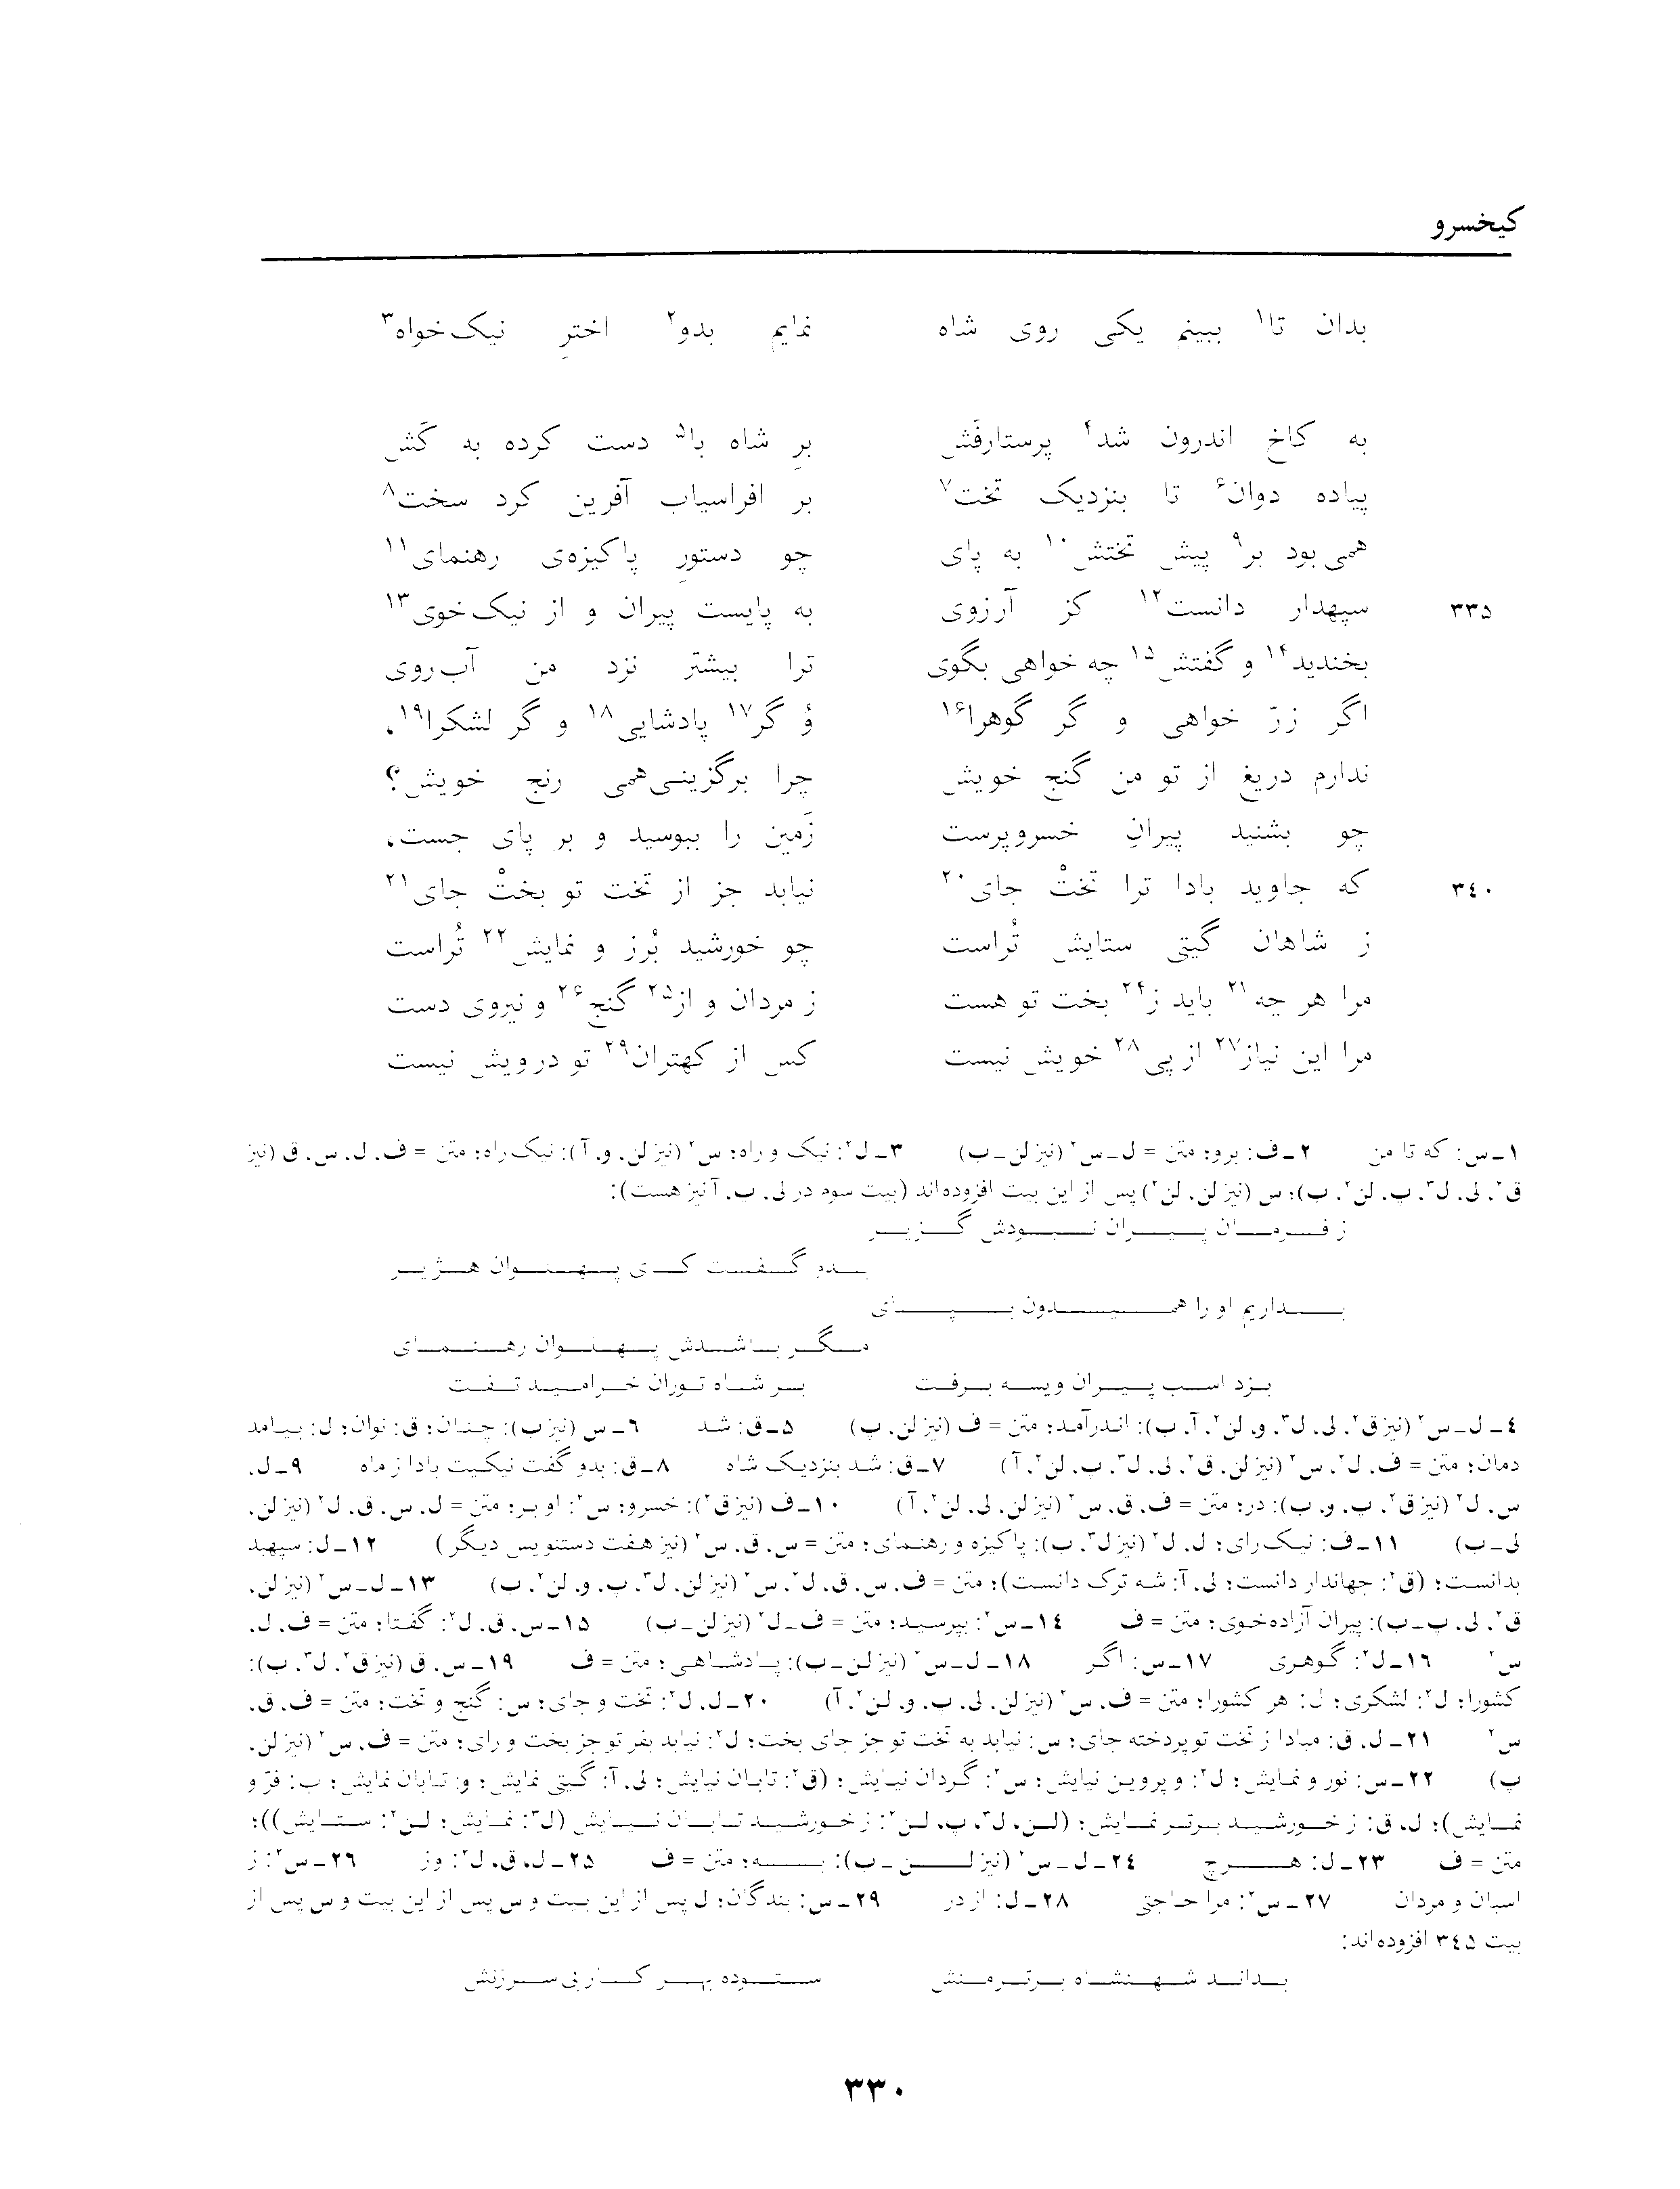 کیخسرو
بدان تا۱ ببینم یکی روی شاه نمایم بدو۲ اخترِ نیک‌خواه۳
به کاخ اندرون شد۴ پرستارفَش برِ شاه با۵ دست کرده به کَش
پیاده دوان۶ تا بنزدیک تخت۷ بر افراسیاب آفرین کرد سخت۸
همی‌بود بر۹ پیش تختش۱۰ به پای چو دستورِ پاکیزه‌ی رهنمای۱۱
۳۳۵ سپهدار دانست۱۲ کز آرزوی به پایست پیران و از نیک‌خوی۱۳
بخندید۱۴ و گفتش۱۵ چه خواهی بگوی ترا بیشتر نزد من آب‌روی
اگر زرّ خواهی و گر گوهرا۱۶ وُ گر۱۷ پادشایی۱۸ و گر لشکرا۱۹،
ندارم دریغ از تو من گنج خویش چرا برگزینی‌همی رنج خویش؟
چو بشنید پیرانِ خسروپرست زَمین را ببوسید و بر پای جست،
۳۴۰ که جاوید بادا ترا تختْ جای۲۰ نیابد جز از تخت تو بختْ جای۲۱
ز شاهان گیتی ستایش تُراست چو خورشید بُرز و نمایش۲۲ تُراست
مرا هر چه۲۱ باید ز۲۴ بخت تو هست ز مردان و از۲۵ گنج۲۶ و نیروی دست
مرا این نیاز۲۷ از پی۲۸ خویش نیست کس از کهتران۲۹ تو درویش نیست
۱ـ س: که تا من ۲ـ ف: برو؛ متن = ل ـ س۲ (نیز لن ـ ب) ۳ـ ل۲: نیک و راه؛ س۲ (نیز لن، و، آ): نیک‌راه؛ متن = ف، ل، س، ق (نیز
ق۲، لی، ل۳، پ، لن۲، ب)؛ س (نیز لن، لن۲) پس از این بیت افزوده‌اند (بیت سوم در لی، ب، آ نیز هست):
ز فرمان پیران نبودش گزیر
بدو گفت کای پهلوان هژیر
بداریم او را همیدون بپای
مگر باشدش پهلوان رهنمای
بزد اسب پیران ویسه برفت بر شاه توران خرامید تفت
۴ـ ل ـ س۲ (نیز ق۲، لی، ل۳، و، لن۲، آ، ب): اندرآمد؛ متن = ف (نیز لن، پ) ۵ـ ق: شد ۶ـ س (نیز ب): چنان؛ ق: نوان؛ ل: بیامد
دمان؛ متن = ف، ل۲، س۲ (نیز لن، ق۲، لی، ل۳، پ، لن۲، آ) ۷ـ ق: شد بنزدیک شاه ۸ـ ق: بدو گفت نیکیت بادا ز ماه ۹ـ ل،
س، ل۲ (نیز ق۲، پ، و، ب): در؛ متن = ف، ق، س۲ (نیز لن، لی، لن۲، آ) ۱۰ـ ف (نیز ق۲): خسرو؛ س۲: او بر؛ متن = ل، س، ق، ل۲ (نیز لن،
لی ـ ب) ۱۱ـ ف: نیک‌رای؛ ل، ل۲ (نیز ل۳، ب): پاکیزه و رهنمای؛ متن = س، ق، س۲ (نیز هفت دستنویس دیگر) ۱۲ـ ل: سپهبد
بدانست؛ (ق۲: جهاندار دانست؛ لی، آ: شه ترک دانست)؛ متن = ف، س، ق، ل۲، س۲ (نیز لن، ل۳، پ، و، لن۲، ب) ۱۳ـ ل ـ س۲ (نیز لن،
ق۲، لی، پ ـ ب): پیران آزاده‌خوی؛ متن = ف ۱۴ـ س۲: بپرسید؛ متن = ف ـ ل۲ (نیز لن ـ ب) ۱۵ـ س، ق، ل۲: گفتا؛ متن = ف، ل،
س۲ ۱۶ـ ل۲: گوهری ۱۷ـ س: اگر ۱۸ـ ل ـ س۲ (نیز لن ـ ب): پادشاهی؛ متن = ف ۱۹ـ س، ق (نیز ق۲، ل۳، ب):
کشورا؛ ل۲: لشکری؛ ل: هر کشورا؛ متن = ف، س۲ (نیز لن، لی، پ، و، لن۲، آ) ۲۰ـ ل، ل۲: تخت و جای؛ س: گنج و تخت؛ متن = ف، ق،
س۲ ۲۱ـ ل، ق: مبادا ز تخت تو پردخته جای؛ س: نیابد به تخت تو جز جای بخت؛ ل۲: نیابد بفر تو جز بخت و رای؛ متن = ف، س۲ (نیز لن،
پ) ۲۲ـ س: نور و نمایش؛ ل۲: و پروین نیایش؛ س۲: گردان نیایش؛ (ق۲: تابان نیایش؛ لی، آ: گیتی نمایش؛ و: تابان نمایش؛ ب: فرّ و
نمایش)؛ ل، ق: ز خورشید برتر نمایش؛ (لن، ل۳، پ، لن۲: ز خورشید تابان نیایش (ل۳: نمایش؛ لن۲: ستایش))؛
متن = ف ۲۳ـ ل: هرچ ۲۴ـ ل ـ س۲ (نیز لن ـ ب): به؛ متن = ف ۲۵ـ ل، ق، ل۲: وز ۲۶ـ س۲: ز
اسبان و مردان ۲۷ـ س۲: مرا حاجتی ۲۸ـ ل: از در ۲۹ـ س: بندگان؛ ل پس از این بیت و س پس از این بیت و س پس از
بیت ۳۴۵ افزوده‌اند:
بداند شهنشاه برترمنش ستوده بهر کار بی‌سرزنش
۳۳۰